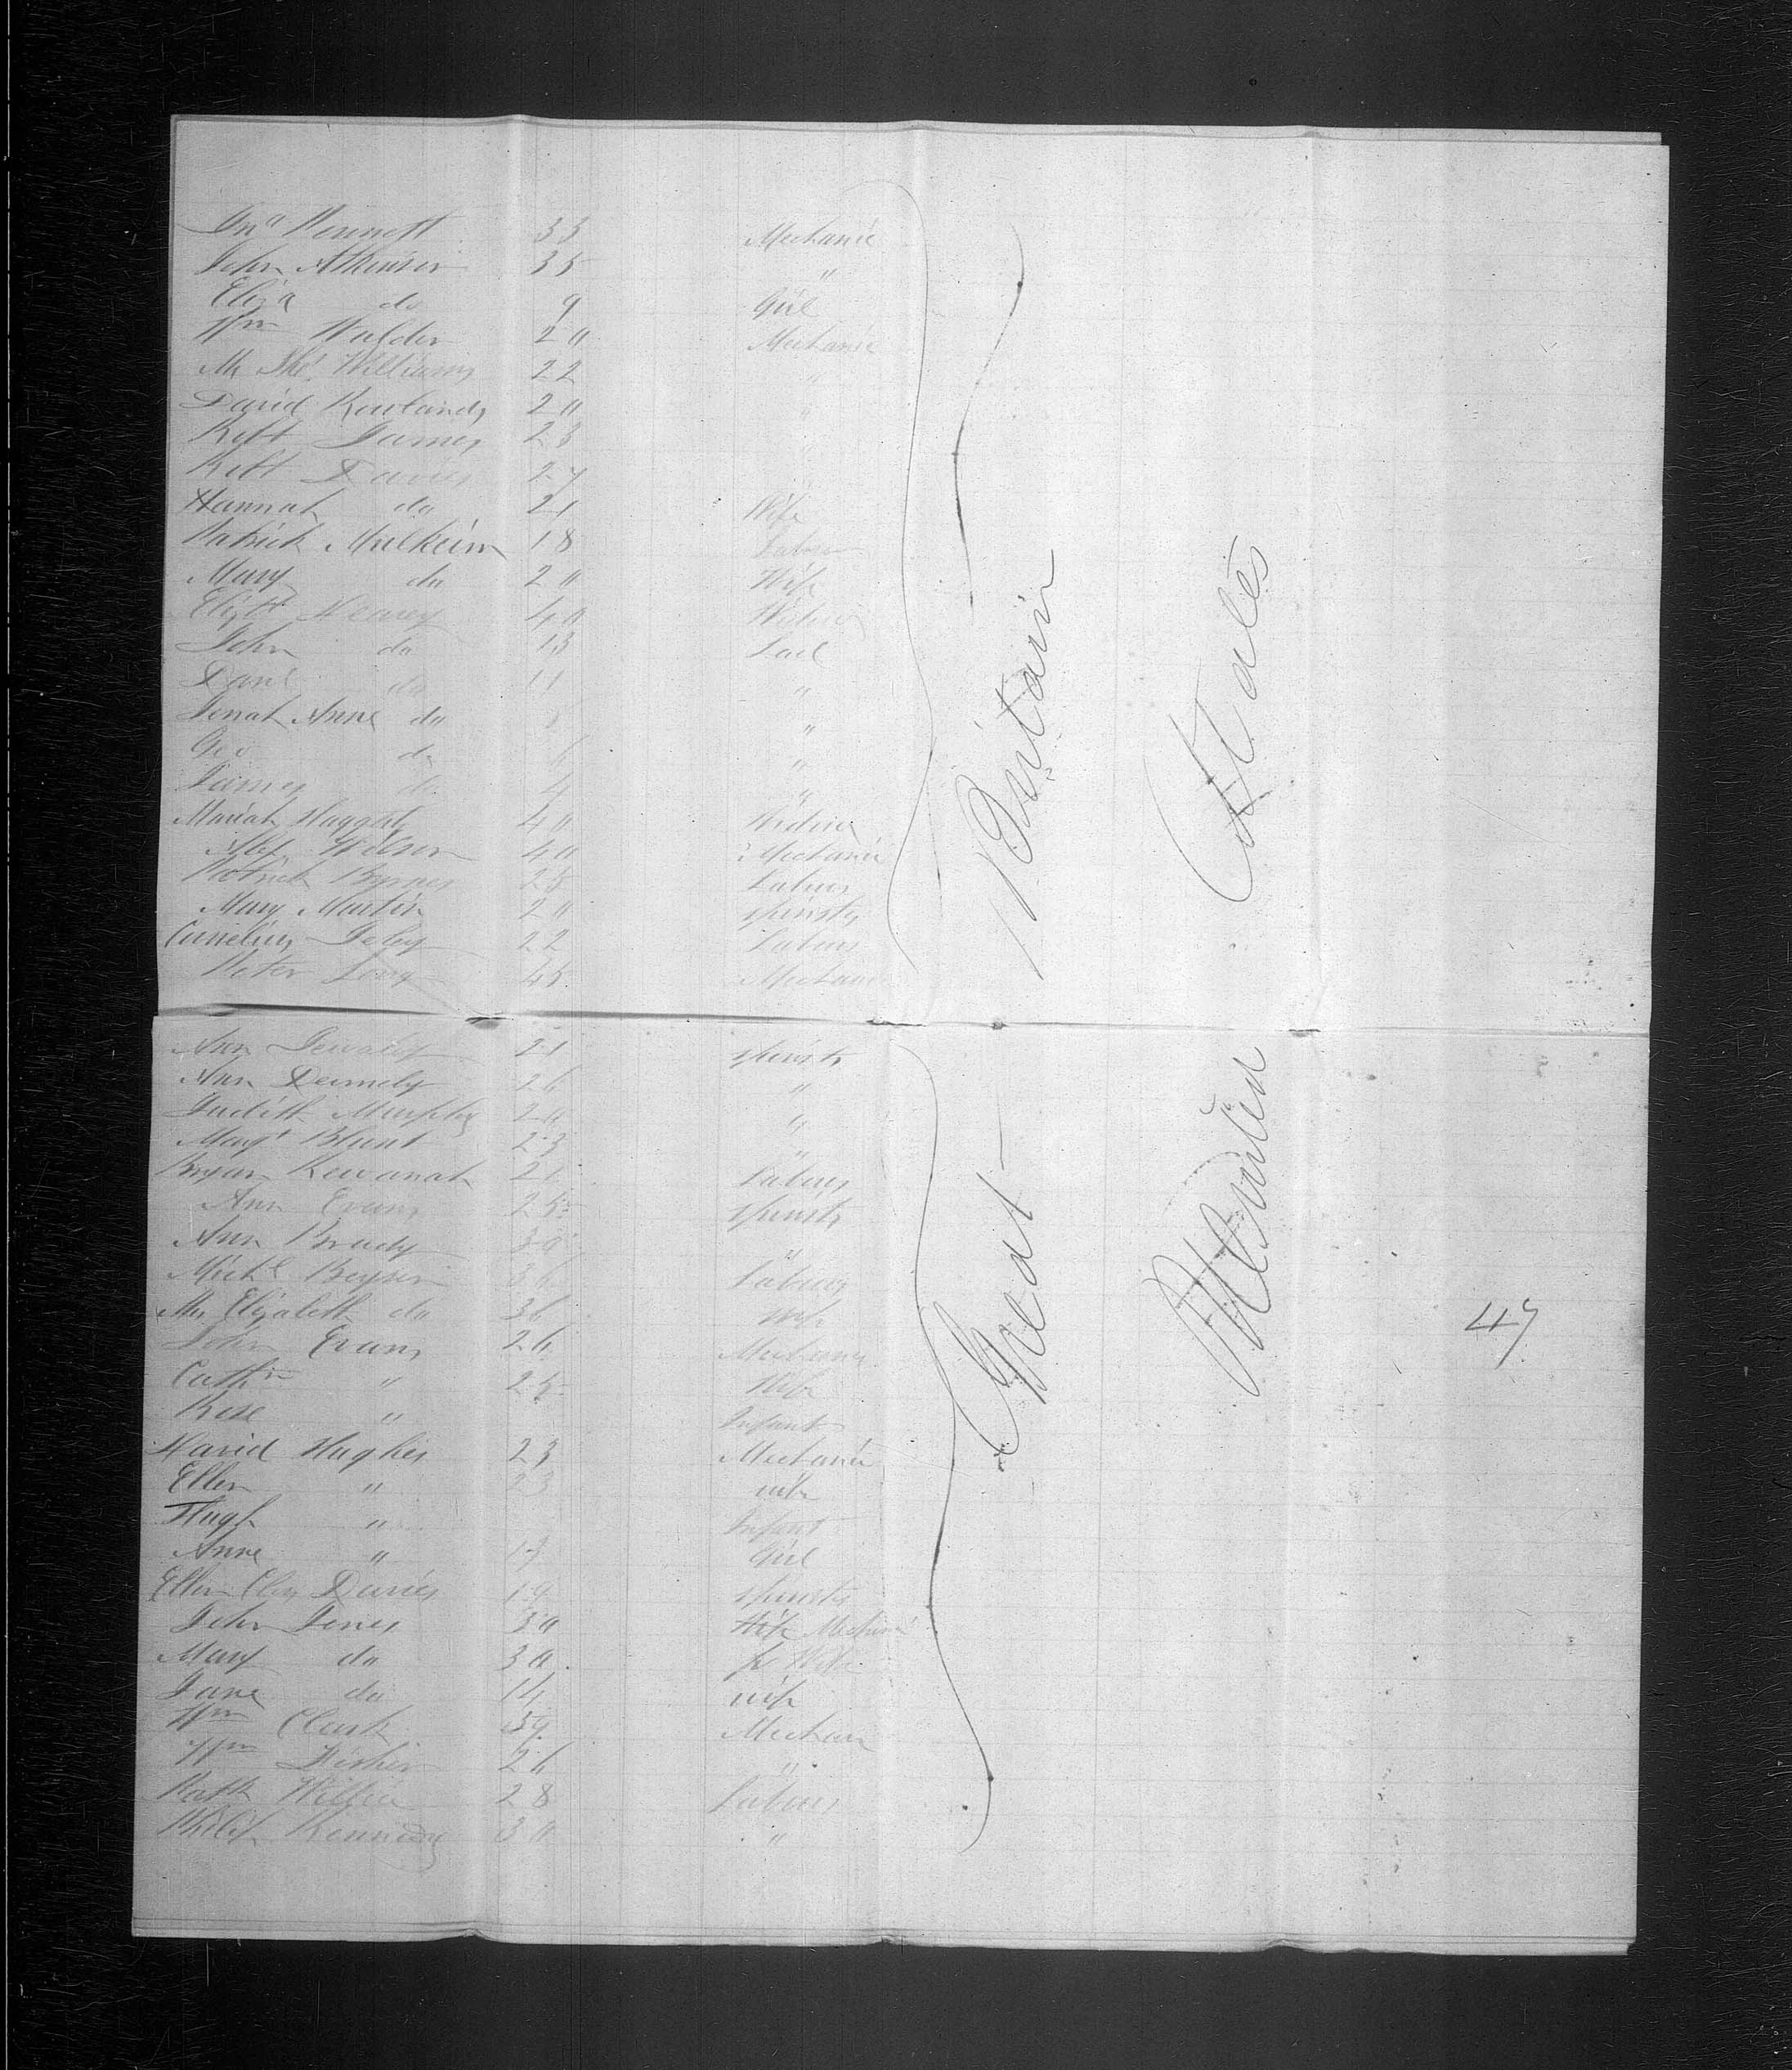 Jno Bennett 33 Mechanic
John Atkinson 35 "
Eliza do 9 Girl
Wm Walder 20 Mechanic
Williams 22 "
David Rowlands 20 "
Robt James 23 "
Robt Davies 27 "
Hannah do 21 Wife
Patrick Mulkeirn 18 Labour
Mary do 20 Wife
Elizth 40 Widow
John do 13 Lad
Danl do 11 "
Anne do "
Geo do 6 "
James do 4 "
Mariah Haggat 40 Widow
Alex Wilson 40 Mechanic
Patrick Byrnes 25 Labour
Mary Martin 20 spinstr
Cornelius 22 Labour
Peter Long 45 Mechanic
Ann 21 spinstr
Ann 26 "
Judith Murphy 20 "
Margt Blunt 23 "
Bryan Kewanah 21 Labour
Ann Evans 25 spinstr
Ann Brady 30 "
Michl 36 Labour
Mrs Elizabeth do 36 wife
John Evans 26 Mechanic
Cathne " 25 Wife
Rose " Infant
David Hughes 23 Mechanic
Ellen " 23 wife
Hugh " Infant
Anne " Girl
Ellen Davies 19 spinstr
John Jones 30 Wife Mechanic
Mary do 30 Wife
Jane do 14 wife
Wm Clark 39 Mechan
Wm Fisher 26 "
28 Labour
Philip Kennedy 30 "
Great Britain
United States
47